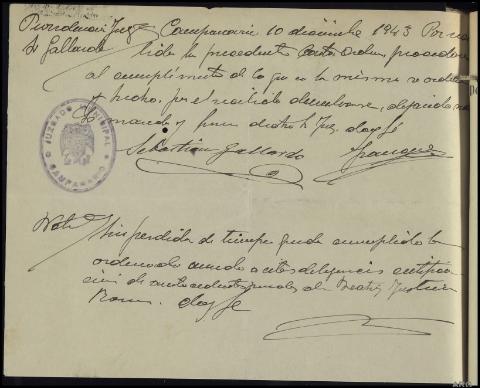 Providencia Juez
Sr Gallardo
Campanario 10 diciembre 1943 Por reci
bida la precedente Carta Orden, procedase
al cumplimiento de lo que en la misma se ordena
y hecho, por el recibido devuelvase, dejando nota
Lo mando y firma dicho Sr Juez, doy fé
Sebastian Gallardo
JUZGADO MUNICIPAL
CAMPANARIO
Nota
Sin perdida de tiempo queda cumplido lo
ordenado uniendo a estas diligencias certifica
ción de antecedentes penales de Beatriz
doy fe